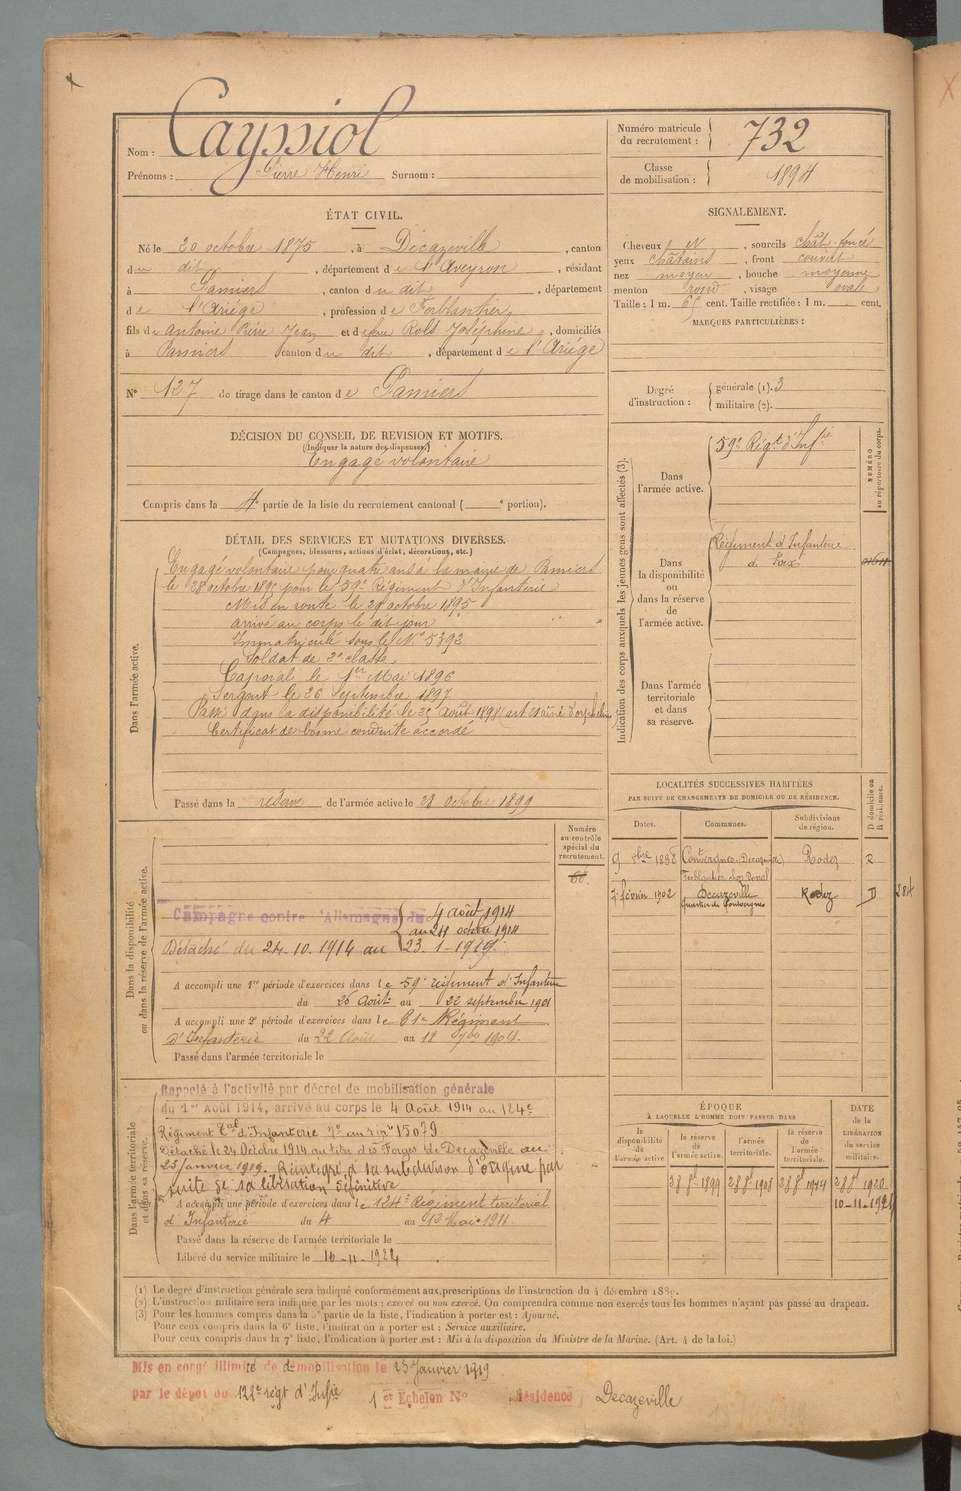 Nom : Cayssiol
Prénoms : Pierre Henri Surnom :
Numéro matricule du recrutement : 732
Classe de mobilisation : 1894
ÉTAT CIVIL.
Né le 20 octobre 1875, à Décazeville, canton
du dit, département de l'Aveyron, résidant
à Pamiers, canton du dit, département
de l'Ariége, profession de Ferblantier,
fils de Antoine Pierre Jean et de feue Rols Joséphine, domiciliés
à Pamiers canton du dit, département de l'Ariége
N° 127 de tirage dans le canton de Pamiers
SIGNALEMENT.
Cheveux et N, sourcils chât-foncé
yeux châtains, front couvert
nez moyen, bouche moyenne
menton rond, visage ovale
Taille : 1 m. 65 cent. Taille rectifiée : 1 m. cent.
MARQUES PARTICULIÈRES :
Degré d'instruction : générale (1). 3
militaire (2).
DÉCISION DU CONSEIL DE REVISION ET MOTIFS.
(Indiquer la nature des dispenses.)
Engagé volontaire
Compris dans la 4e partie de la liste du recrutement cantonal ( e portion).
DÉTAIL DES SERVICES ET MUTATIONS DIVERSES.
(Campagnes, blessures, actions d'éclat, décorations, etc.)
Dans l'armée active.
Engagé volontaire pour quatre ans à la mairie de Pamiers
le 28 octobre 1895 pour le 59e Régiment d'Infanterie
Mis en route le 29 octobre 1895
arrivé au corps le dit jour
Immatriculé sous le N° 5392
Soldat de 2e classe
Caporal le 1er Mai 1896
Sergent le 26 Septembre 1897
Passé dans la disponibilité le 25 Août 1898
Certificat de bonne conduite accordé
Passé dans la réserve de l'armée active le 28 octobre 1899
Indication des corps auxquels les jeunes gens sont affectés (3).
NUMÉRO au répertoire du corps.
Dans l'armée active.
59e Régt d'Infie
Dans la disponibilité ou dans la réserve de l'armée active.
Régiment d'Infanterie
de Foix
Dans l'armée territoriale et dans sa réserve.
LOCALITÉS SUCCESSIVES HABITÉES
PAR SUITE DE CHANGEMENTS DE DOMICILE OU DE RÉSIDENCE.
Dates. Communes. Subdivisions de région. D domicile ou R résidence.
9 8bre 1898 Rodez R
7 février 1902 Decazeville Rodez D
Dans la disponibilité ou dans la réserve de l'armée active.
Numéro au contrôle spécial du recrutement.
Campagne contre l'Allemagne du 4 août 1914
au 24 octobre 1914
Détaché du 24.10.1914 au 23.1.1919.
A accompli une 1re période d'exercices dans le 59e régiment d'Infanterie
du 26 Août au 22 septembre 1901
A accompli une 2e période d'exercices dans le 81e Régiment
d'Infanterie du 22 Août au 18 7bre 1904.
Passé dans l'armée territoriale le
Dans l'armée territoriale et dans sa réserve.
Rappelé à l'activité par décret de mobilisation générale
du 1er Août 1914, arrivé au corps le 4 Août 1914 au 124e
Régiment Tal d'Infanterie 15079.
Détaché le 24 Octobre 1914 au titre des Forges de Decazeville au
23 Janvier 1919. Réintégré à sa subdivision d'origine par
suite de sa libération définitive
A accompli une période d'exercices dans le 124e Régiment territorial
d'Infanterie du 4 au 12 Mai 1911.
Passé dans la réserve de l'armée territoriale le
Libéré du service militaire le 10-11-1921
ÉPOQUE
À LAQUELLE L'HOMME DOIT PASSER DANS
la disponibilité de l'armée active. la réserve de l'armée active. l'armée territoriale. la réserve de l'armée territoriale.
DATE de la LIBÉRATION du service militaire.
28 8e 1899 28 8e 1908 28 8e 1914 28 8e 1920
10-11-1921
(1) Le degré d'instruction générale sera indiqué conformément aux prescriptions de l'instruction du 4 décembre 1889.
(2) L'instruction militaire sera indiquée par les mots : exercé ou non exercé. On comprendra comme non exercés tous les hommes n'ayant pas passé au drapeau.
(3) Pour les hommes compris dans la 5e partie de la liste, l'indication à porter est : Ajourné.
Pour ceux compris dans la 6e liste, l'indication à porter est : Service auxiliaire.
Pour ceux compris dans la 7e liste, l'indication à porter est : Mis à la disposition du Ministre de la Marine. (Art. 4 de la loi.)
Mis en congé illimité de démobilisation le 23 Janvier 1919
par le dépôt du 122e régt d'Infie 1er Echelon N° Résidence Decazeville